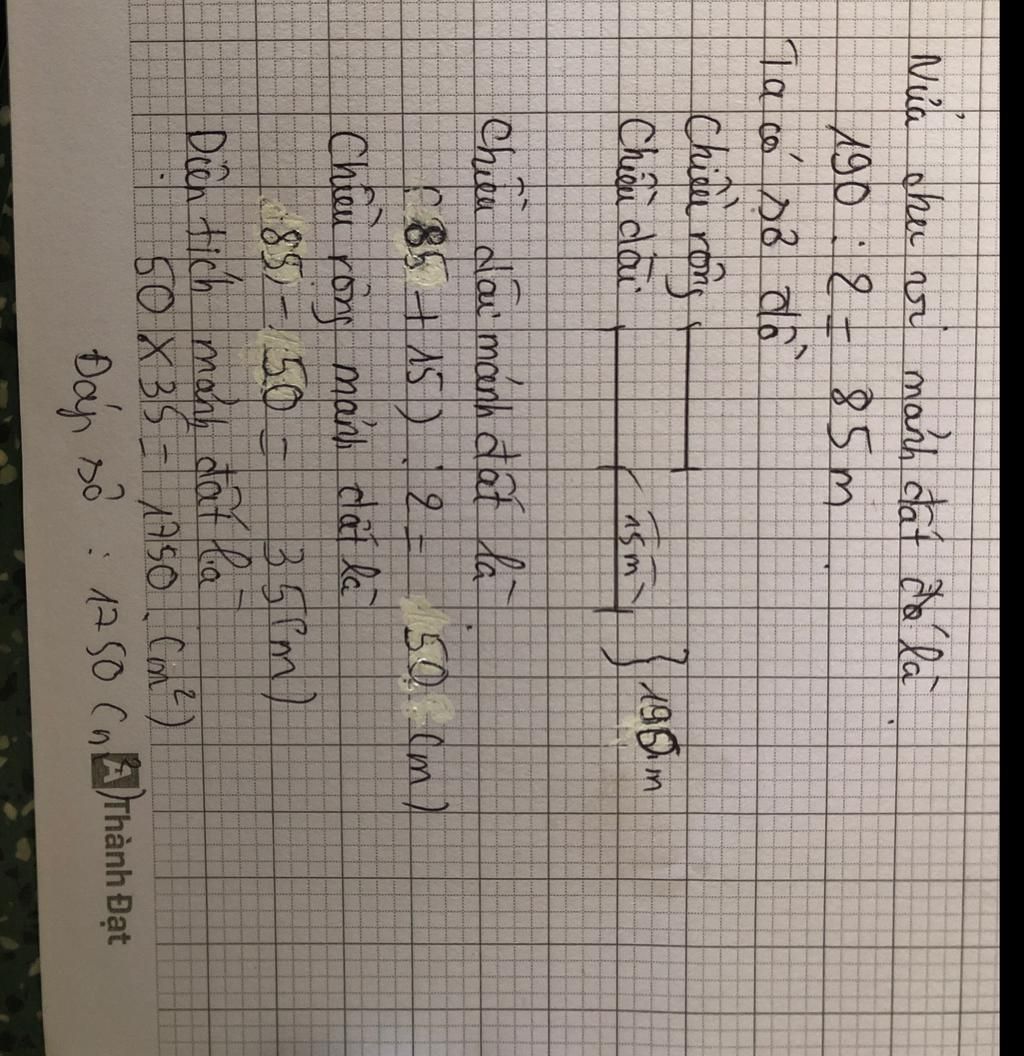 Nửa chu vi mảnh đất đó là
190 : 2 = 85 m
Ta có sơ đồ
Chiều rộng
Chiều dài
15m
190m
Chiều dài mảnh đất là
(85 + 15) : 2 = 50 (m)
Chiều rộng mảnh đất là
85 - 50 = 35 (m)
Diện tích mảnh đất là
50 x 35 = 1750 (m²)
Đáp số : 1750 (m²)
Thành Đạt